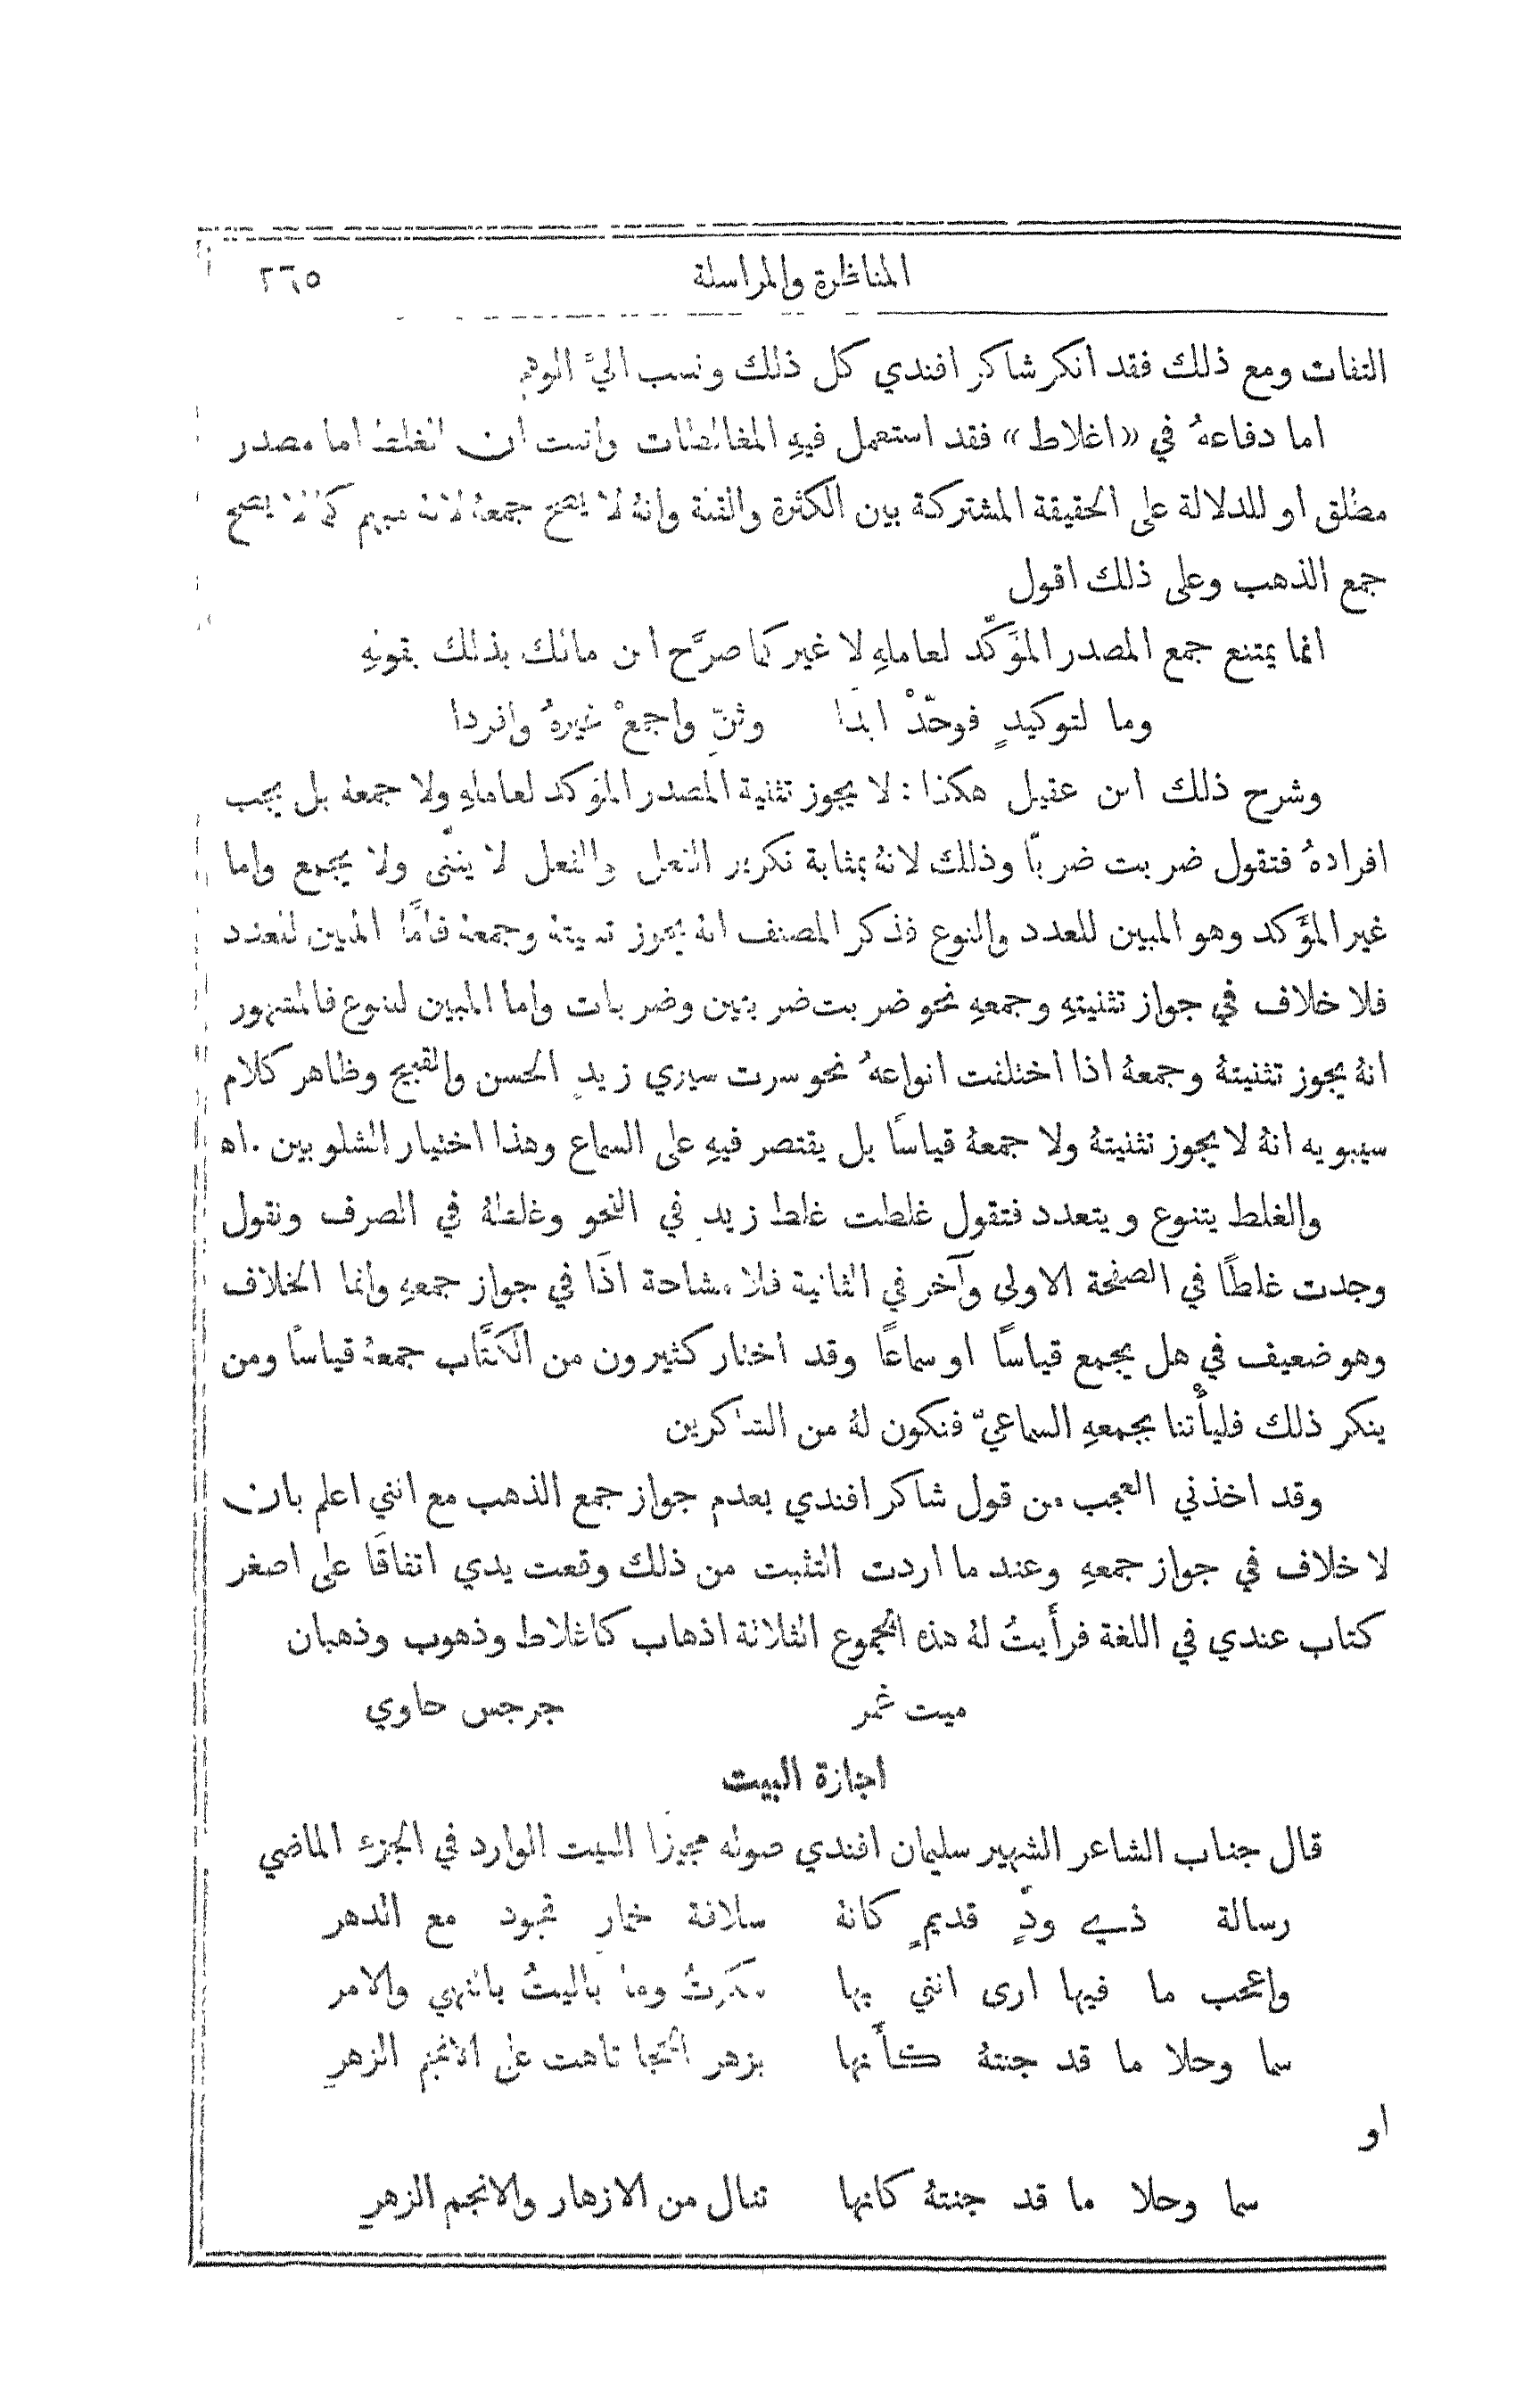 المناظرة والمراسلة ٢٦٥
التفات ومع ذلك فقد انكر شاكر افندي كل ذلك ونسب اليَّ الوهم
اما دفاعهُ في «اغلاط» فقد استعمل فيهِ المغالطات واثبت ان الغلط اما مصدر
مطلق او للدلالة على الحقيقة المشتركة بين الكثرة والقلة وانهُ لا يصح جمعهُ لانهُ مبهم كما لا يصح
جمع الذهب وعلى ذلك اقول
انما يمتنع جمع المصدر المؤَكّد لعاملهِ لا غير كما صرَّح ابن مالك بذلك بقولهِ
وما لتوكيدٍ فوحّدْ ابدًا وثنّ واجمعْ غيرهُ وافردا
وشرح ذلك ابن عقيل هكذا : لا يجوز تثنية المصدر المؤكد لعاملهِ ولا جمعهُ بل يجب
افرادهُ فتقول ضربت ضربًا وذلك لانهُ بمثابة تكرير الفعل والفعل لا يثنّى ولا يجمع واما
غير المؤَكد وهو المبين للعدد والنوع فذكر المصنف انهُ يجوز تثنيتهُ وجمعهُ فامَّا المبين للعدد
فلا خلاف في جواز تثنيتهِ وجمعهِ نحو ضربت ضربتين وضربات واما المبين للنوع فالمشهور
انهُ يجوز تثنيتهُ وجمعهُ اذا اختلفت انواعهُ نحو سرت سيري زيدٍ الحسن والقبيح وظاهر كلام
سيبويه انهُ لا يجوز تثنيتهُ ولا جمعهُ قياسًا بل يقتصر فيهِ على السماع وهذا اختيار الشلوبين . اه
والغلط يتنوع ويتعدد فتقول غلطت غلط زيدٍ في النحو وغلطهُ في الصرف ونقول
وجدت غلطًا في الصفحة الاولى وآخر في الثانية فلا مشاحة اذًا في جواز جمعهِ وانما الخلاف
وهو ضعيف في هل يجمع قياسًا او سماعًا وقد اختار كثيرون من الكتَّاب جمعهُ قياسًا ومن
ينكر ذلك فليأْتنا بجمعهِ السماعيّ فنكون لهُ من الشاكرين
وقد اخذني العجب من قول شاكر افندي بعدم جواز جمع الذهب مع انني اعلم بان
لا خلاف في جواز جمعهِ وعند ما اردت التثبت من ذلك وقعت يدي اتفاقًا على اصغر
كتاب عندي في اللغة فرأَيتُ لهُ هذه الجموع الثلاثة اذهاب كاغلاط وذهوب وذهبان
ميت غمر جرجس حاوي
اجازة البيت
قال جناب الشاعر الشهير سليمان افندي صوله مجيزًا البيت الوارد في الجزء الماضي
رسالة ذي ودٍّ قديمٍ كانهُ سلافة خمارٍ تجود مع الدهر
واعجب ما فيها ارى انني بها سكرتُ وما باليتُ بالنهي والامر
سما وحلا ما قد جنتهُ كأَنها بزهر الحجا تاهت على الانجم الزهرِ
او
سما وحلا ما قد جنتهُ كانها تنال من الازهار والانجم الزهرِ